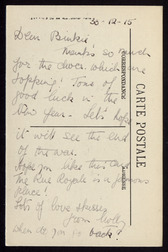 30-12-15
Dear Binkie
Thanks so much
for the chocs which are
topping! Tons of
good luck in the
New Year - let's hope
it will see the end
of the war.
Hope you like this card
the Rue Royale is a famous
place!
Lots of love & kisses
from Molly
when do you go back?
CARTE POSTALE
CORRESPONDANCE